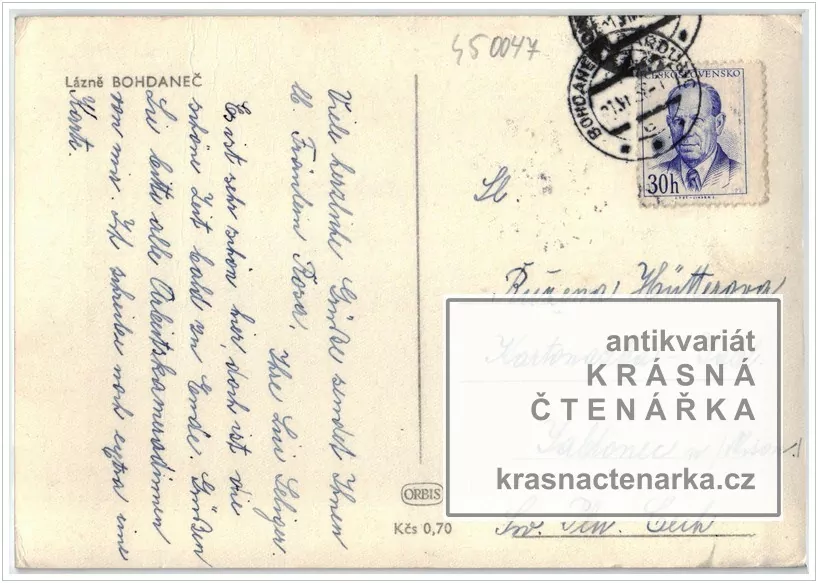 450047
Lázně BOHDANEČ
Viele herzliche Grüße sendet Ihnen
lb. Fräulein Rosa, Ihre Lisi
Es ist sehr schön hier, doch ist die
schöne Zeit bald zu Ende. Grüßen
Sie bitte alle Arbeitskameradinnen
von mir. Ich schreibe noch extra eine
Karte.
BOHDANEČ
ČESKOSLOVENSKO
30h
Sl.
Růžena Hütterova
antikvariát
KRÁSNÁ
ČTENÁŘKA
Jablonec n/Nisou
krasnactenarka.cz
ORBIS
Kčs 0,70